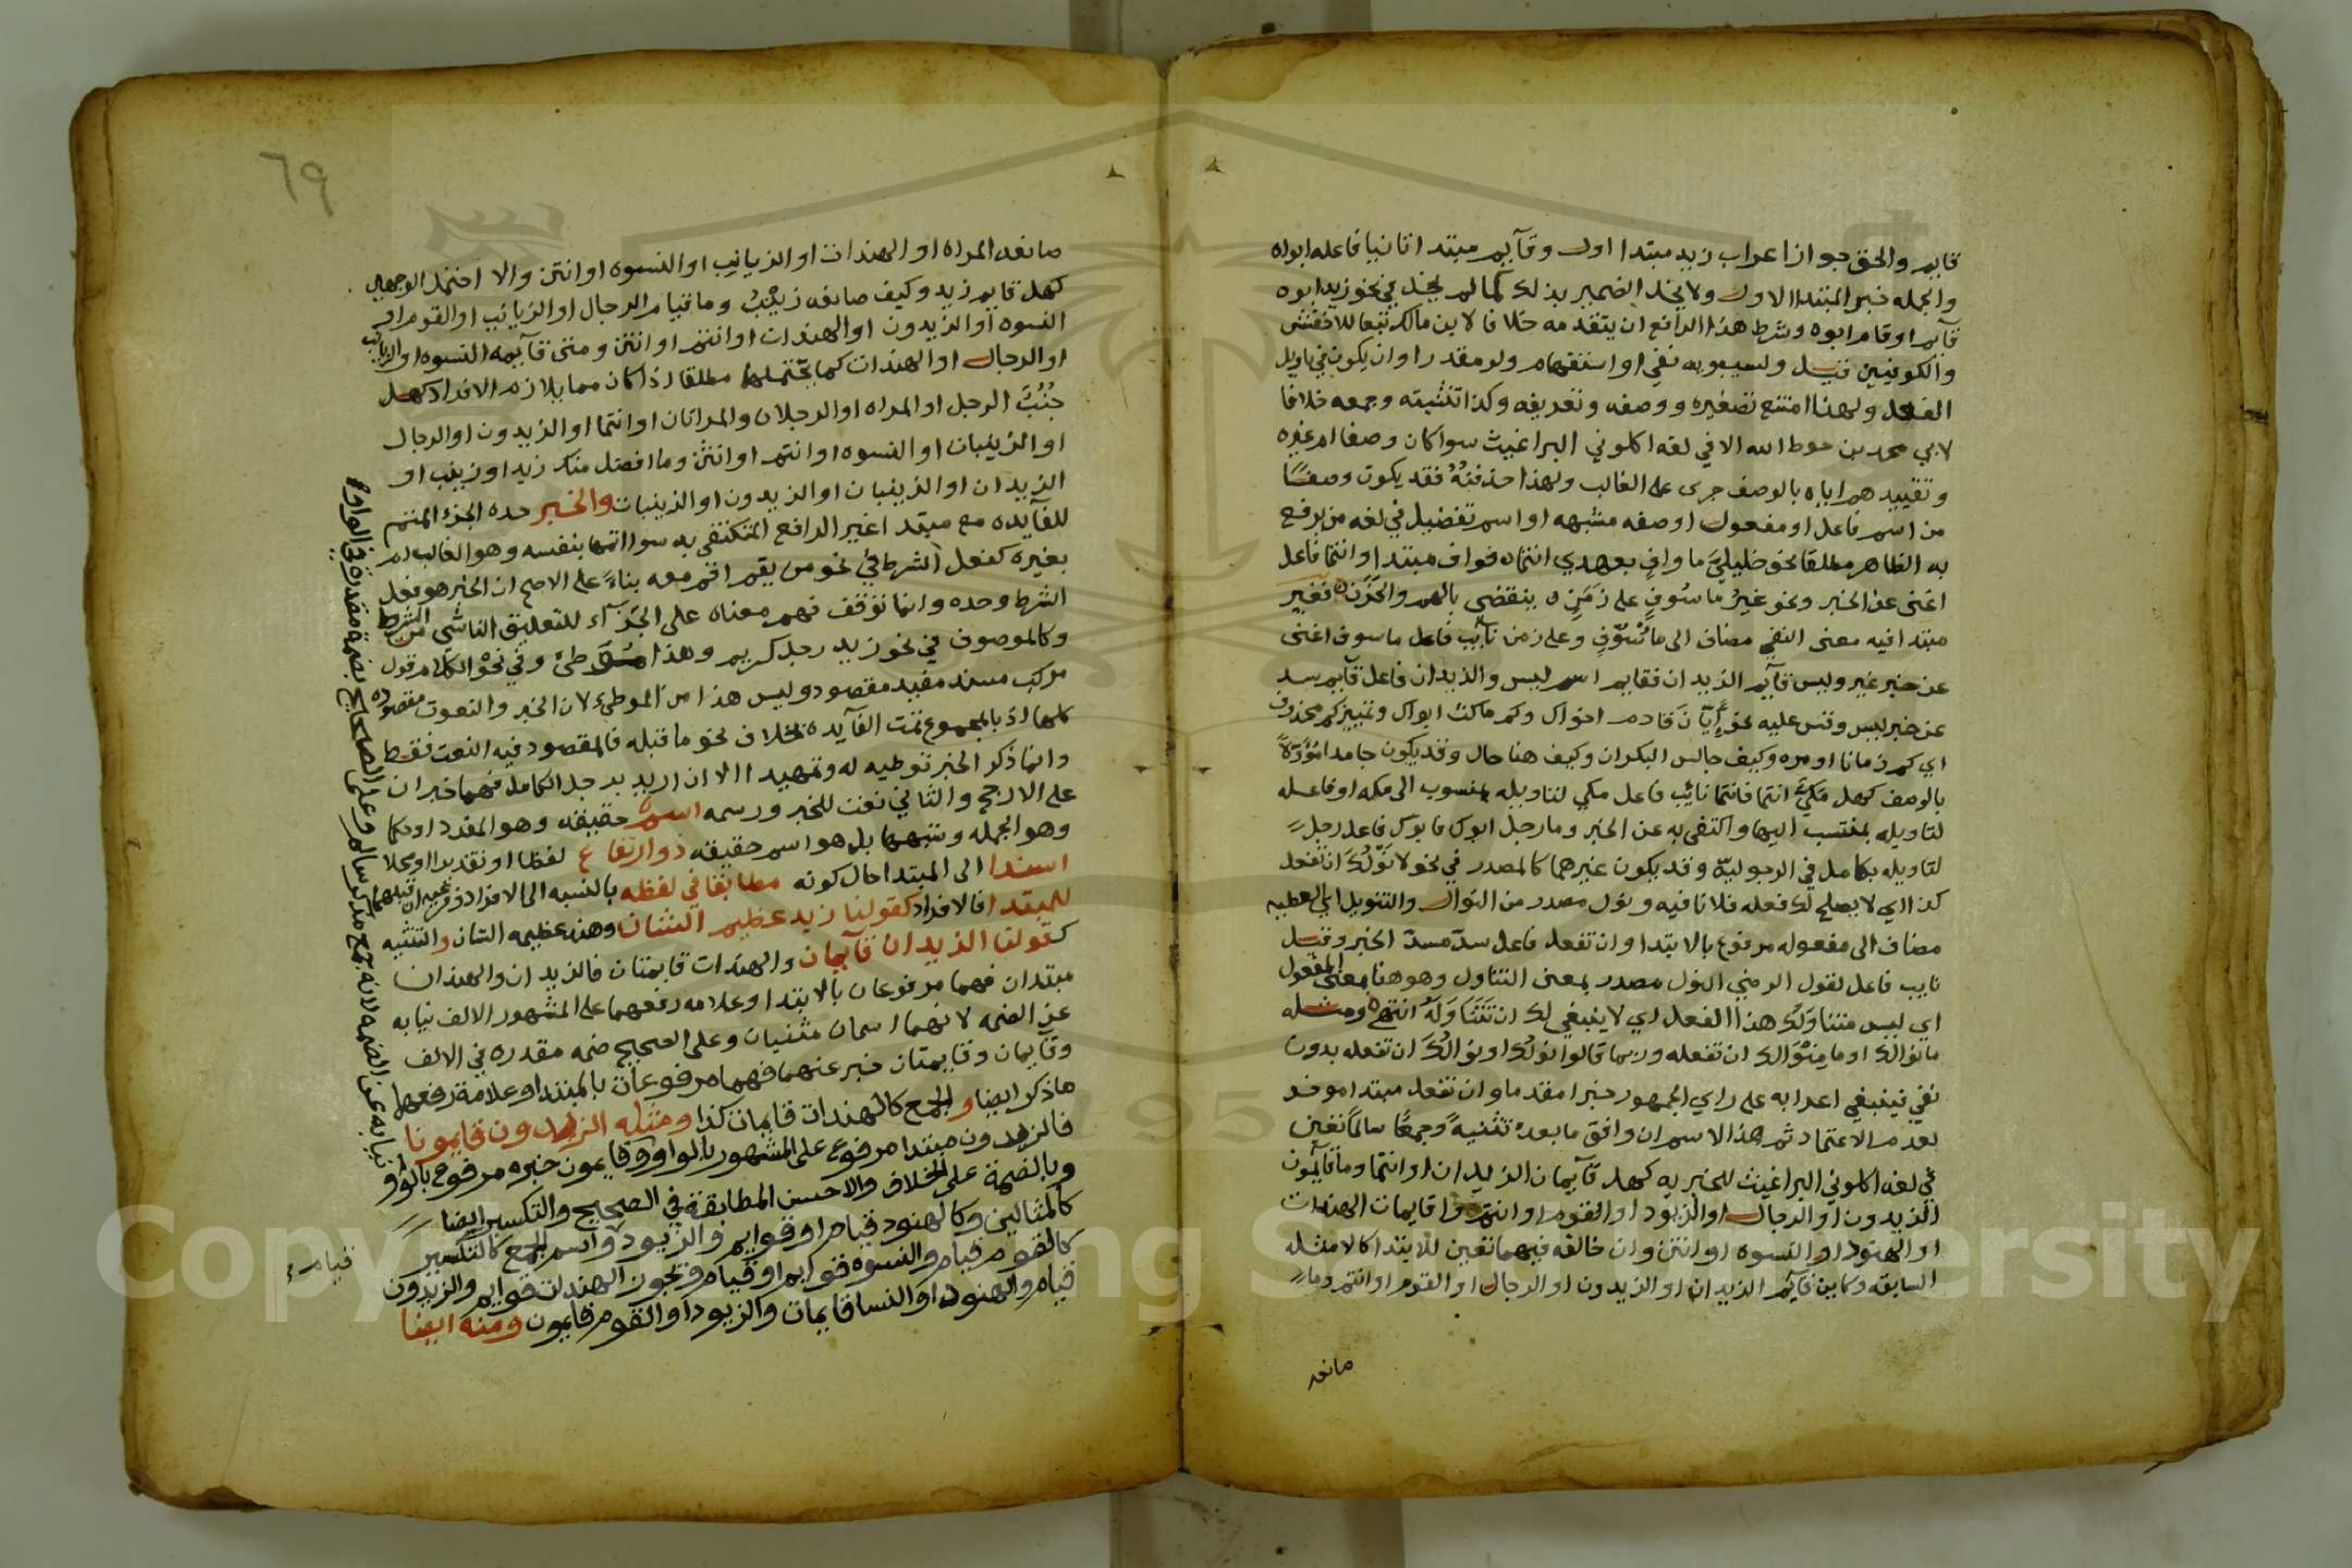 قايم والحق جواز اعراب زيد مبتدا اول وقآيم مبتدا ثانيا فاعله ابواه
والجمله خبر المبتدا الاول ولا يخل الضمير بذلك كما لم يخل في نحو زيد ابوه
قآيم او قام ابوه وشرط هذا الرافع ان يتقدمه خلافا لابن مالك تبعا للاخفش
والكوفيين قيل ولسيبويه نفي او استفهام ولو مقدرا وان يكون في تاويل
الفعل ولهذا امتنع تصغيره ووصفه وتعريفه وكذا تثنيته وجمعه خلافا
لابي محمد بن حوط الله الا في لغه اكلوني البراغيث سوا كان وصفا ام غيره
وتقييدهم اياه بالوصف جرى على الغالب ولهذا حذفتُهُ فقد يكون وصفًا
من اسم فاعل او مفعول او صفه مشبهه او اسم تفضيل في لغه من يرفع
به الظاهر مطلقا نحو خليليَّ ما وافٍ بعهدي انتماه فواف مبتدا وانتما فاعل
اغنى عن الخبر ونحو غيرُ ماسُوفٍ على زَمَنٍ ه ينقضي بالهم والحَزَن ه فغير
مبتدا فيه معنى النفي مضاف الى مأسُوفٍ وعلى زمن نآيب فاعل ماسوف اغنى
عن خبر غير وليس قآيم الزيدان فقايم اسم ليس والزيدان فاعل قآيم سد
عن خبر ليس وقس عليه نحو أيّانَ قادم اخواك وكم ماكث ابواك وتمييز كم محذوف
اي كم زمانا او مره وكيف جالس البكران وكيف هنا حال وقد يكون جامدا مُؤَوَّلاً
بالوصف كهل مَكِّيٌّ انتما فانتما نائب فاعل مكي لتاويله بمنسوب الى مكه او فاعله
لتاويله بمنتسب اليها واكتفى به عن الخبر وما رجل ابوك فابوك فاعل رجل
لتاويله بكامل في الرجوليّه وقد يكون غيرهما كالمصدر في نحو لا نَوْلُكَ ان تفعل
كذا اي لا يصلح لك فعله فلا نافيه ونول مصدر من النوال والتنويل اي العطيه
مضاف الى مفعوله مرفوع بالابتدا وان تفعل فاعل سدّ مسدّ الخبر وقيل
نايب فاعل لقول الرضي النول مصدر بمعنى التناول وهو هنا بمعنى المفعول
اي ليس متناوَلُك هذا الفعل اي لا ينبغي لك ان تَتَنَاوَلَه انتهى ومثله
ما نوالك او ما مِنْوَالك ان تفعله وربما قالوا نولُك او نوالُكَ ان تفعله بدون
نفي فينبغي اعرابه على راي الجمهور خبرا مقدما وان تفعل مبتدا موخر
لعدم الاعتماد ثم هذا الاسم ان وافق ما بعده تثنيهً وجمعًا سالمًا تعين
في لغه اكلوني البراغيث للخبريه كهل قآيمان الزيدان او انتما وما قآيمون
الزيدون او الرجال او الزيود او القوم او انتم وا قايمات الهندات
او الهنود او النسوه او انتن وان خالفه فيهما تعين للابتدا كالامثله
السابقه وكاين قآيم الزيدان او الزيدون او الرجال او القوم او انتم وما
صانعه
٦٩
صانعه المراه او الهندات او الزيانب او النسوه او انتن والا احتمل الوجهين
كهل قايم زيد وكيف صانعه زينبُ وما قيام الرجال او الزيانب او القوم او
النسوه او الزيدون او الهندات او انتم او انتن ومتى قآيمه النسوه او الزيانب
او الرجال او الهندات كما يحتملها مطلقا اذا كان مما يلازم الافراد كهل
جُنُبٌ الرجل او المراه او الرجلان والمراتان او انتما او الزيدون او الرجال
او الزينبات او النسوه او انتم او انتن وما افضل منك زيد او زينب او
الزيدان او الزينبان او الزيدون او الزينبات والخبر حده الجزء المتمم
للفآيده مع مبتدا غير الرافع المكتفى به سوا اتمها بنفسه وهو الغالب ام
بغيره كفعل الشرط في نحو من يقم اقم معه بناءً على الاصح ان الخبر هو فعل
الشرط وحده وانما توقف فهم معناه على الجزآء للتعليق الناشي من الشرط
وكالموصوف في نحو زيد رجل كريم وهذا موطئ وفي نحو الكلام قول
مركب مسند مفيد مقصود وليس هذا من الموطي لان الخبر والنعوت مقصوده
كلها اذ بالمجموع تمت الفآيده بخلاف نحو ما قبله فالمقصود فيه النعت فقط
وانما ذكر الخبر توطيه له وتمهيدا الا ان اريد برجل الكامل فهما خبران
على الارجح والثاني نعت للخبر ورسمه اسم حقيقه وهو المفرد او حكما
وهو الجمله وشبهها بل هو اسم حقيقه ذو ارتفاع لفظا او تقديرا او محلا
اسند الى المبتدا حال كونه مطابقا في لفظه بالنسبه الى الافراد وفرعيه ان قبلهما
للمبتدا فالافراد كقولنا زيد عظيم الشان وهند عظيمه الشان والتثنيه
كقولنا الزيدان قآيمان والهندات قايمتان فالزيدان والهندان
مبتدان فهما مرفوعان بالابتدا وعلامه رفعهما على المشهور الالف نيابه
عن الضمه لانهما اسمان مثنيان وعلى الصحيح ضمه مقدره في الالف
وقايمان وقايمتان خبر عنهما فهما مرفوعان بالمبتدا وعلامة رفعهما
ما ذكر ايضا والجمع كالهندات قايمات كذا ومثله الزيدون قايمونا
فالزيدون مبتدا مرفوع على المشهور بالواو وقايمون خبره مرفوع بالواو
وبالضمة على الخلاف والاحسن المطابقة في الصحيح والتكسير ايضا
كالمثالين وكالهنود قيام او قوايم والزيود واسم الجمع كالتكسير
كالقوم قيام والنسوه قوايم او قيام ويجوز الهندات قوايم والزيدون
قيام والهنود او النسا قايمات والزيود او القوم قايمون ومنه ايضا
نيابه عن الضمه لانه جمع مذكر سالم وعلى الصحيح بضمة مقدره في الواو
قيام
Copyright © King Saud University
195